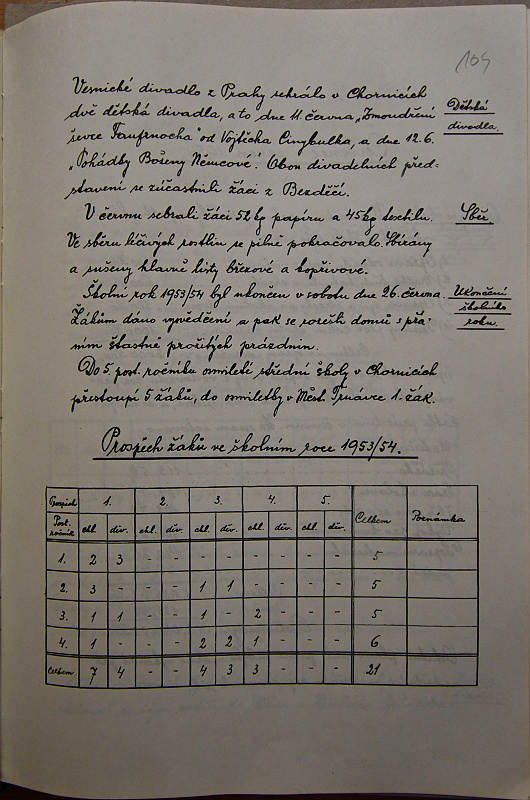 104
Vesnické divadlo z Prahy sehrálo v Chornicích
dvě dětská divadla, a to dne 11. června „Zmoudření
ševce Faufrnocha" od Vojtěcha Cinybulka, a dne 12.6.
„Pohádky Boženy Němcové". Obou divadelních před-
stavení se zúčastnili žáci z Bezděčí.
Dětská
divadla.
V červnu sebrali žáci 52 kg papíru a 45 kg textilu.
Ve sběru léčivých rostlin se pilně pokračovalo. Sbírány
a sušeny hlavně listy březové a kopřivové.
Sběr.
Školní rok 1953/54 byl ukončen v sobotu dne 26. června.
Žákům dáno vysvědčení a pak se rozešli domů s přá-
ním šťastně prožitých prázdnin.
Ukončení
školního
roku.
Do 5. post. ročníku osmileté střední školy v Chornicích
přestoupí 5 žáků, do osmiletky v Měst. Trnávce 1. žák.
Prospěch žáků ve školním roce 1953/54.
Prospěch 1. 2. 3. 4. 5. Celkem Poznámka
Post. ročník chl. děv. chl. děv. chl. děv. chl. děv. chl. děv.
1. 2 3 - - - - - - - - 5
2. 3 - - - 1 1 - - - - 5
3. 1 1 - - 1 - 2 - - - 5
4. 1 - - - 2 2 1 - - - 6
Celkem 7 4 - - 4 3 3 - - - 21